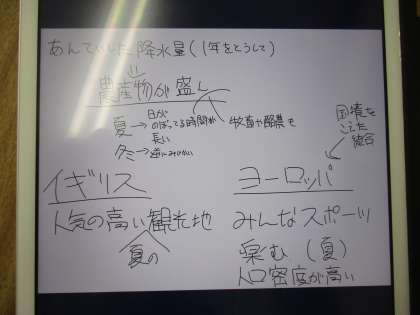 あんていした降水量(1年をとうして)
農産物が盛ん
夏→日が
のぼってる時間が
長い
牧畜や酪農も
冬→逆にみじかい
国境を
こえた
統合
イギリス
人気の高い観光地
夏の
ヨーロッパ
みんなスポーツ
楽む(夏)
人口密度が高い